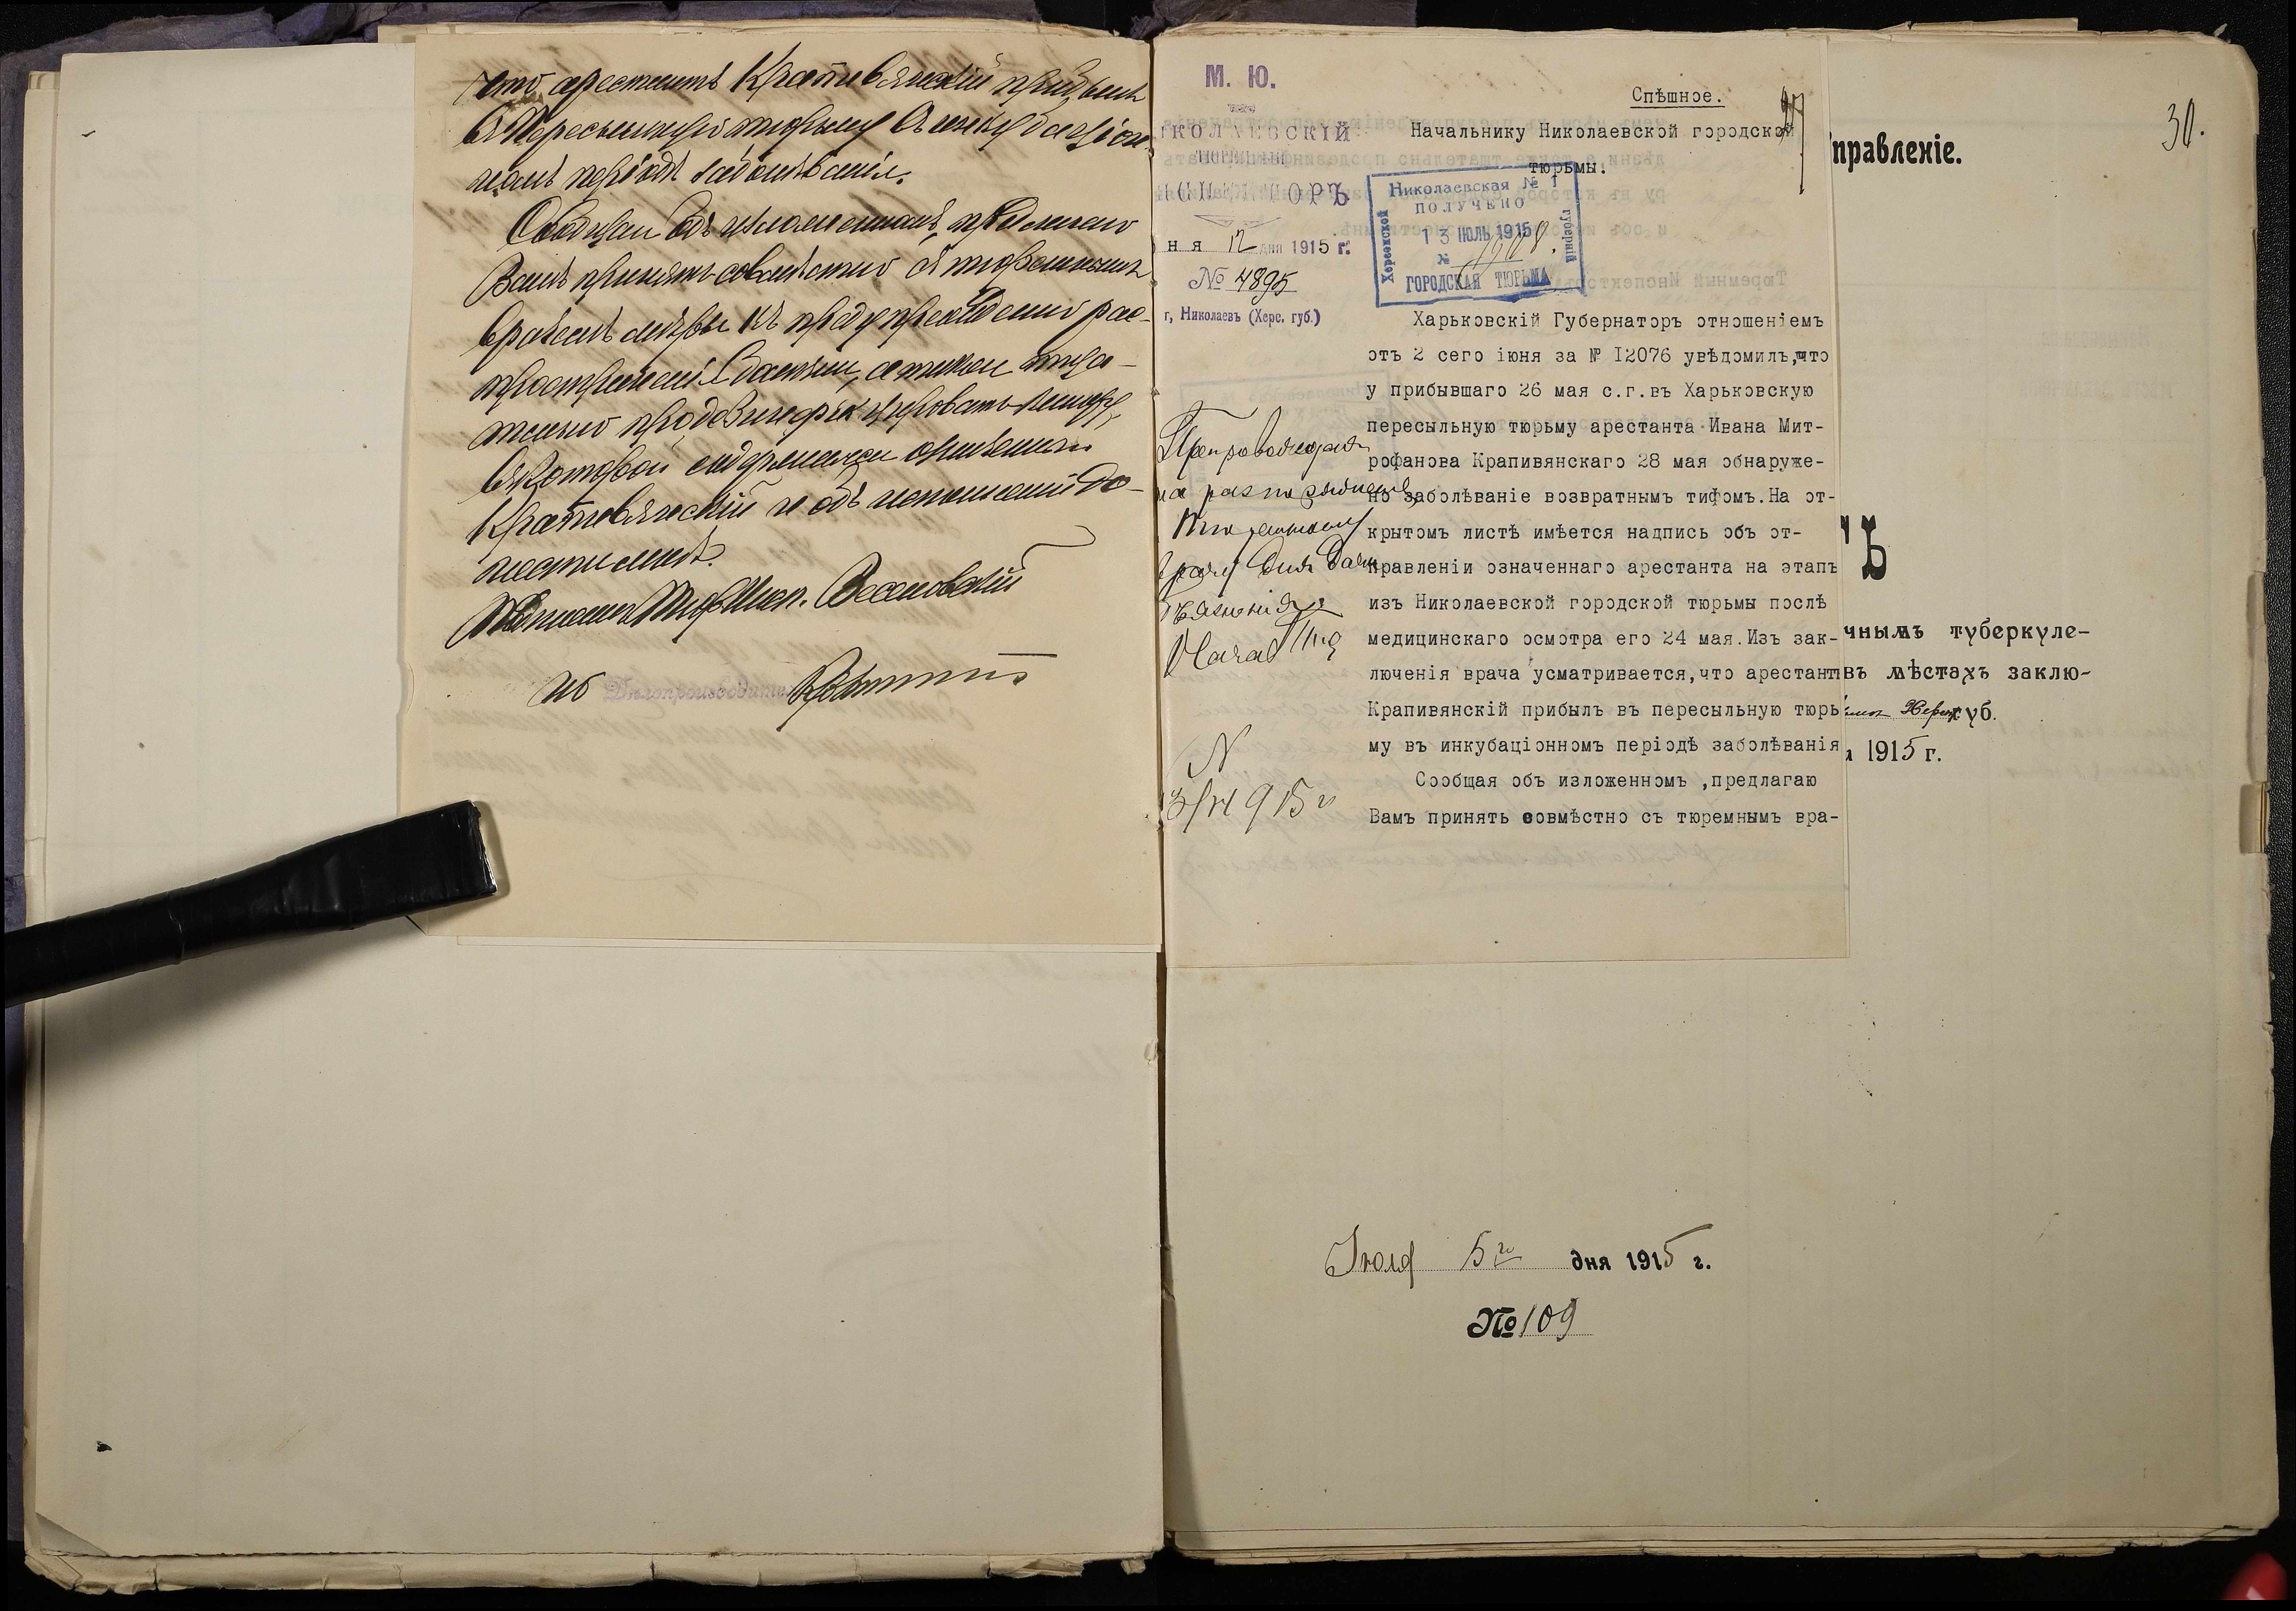 что арестантъ Крапивянскій прибылъ
въ Пересыльную тюрьму въ инкубаціон-
номъ періодѣ заболѣванія.
Сообщая объ изложенномъ, предлагаю
Вамъ принять совмѣстно съ тюремнымъ
врачемъ мѣры къ предупрежденію рас-
пространенія болѣзни, а также тща-
тельно продезинфекцировать камеру,
въ которой содержался арестантъ
Крапивянскій и объ исполненіи до-
нести мнѣ.
Подписалъ Тюр. Инсп.
Дѣлопроизводитель
М. Ю.
НИКОЛАЕВСКІЙ
ТЮРЕМНЫЙ
ИНСПЕКТОРЪ
ня 12 дня 1915 г.
№ 4895
г, Николаевъ (Херс. губ.)
Препровождая
на распоряженіе
Тюремному
врачу для дачи
Начал
N
915 г
Спѣшное.
Начальнику Николаевской городской
тюрьмы.
Николаевская № 1
ПОЛУЧЕНО
13 ІЮЛЬ 1915
№
ГОРОДСКАЯ ТЮРЬМА
Херсонской
губерніи
Харьковскій Губернаторъ отношеніемъ
отъ 2 сего іюня за № I2076 увѣдомилъ,что
у прибывшаго 26 мая с.г.въ Харьковскую
пересыльную тюрьму арестанта Ивана Мит-
рофанова Крапивянскаго 28 мая обнаруже-
но заболѣваніе возвратнымъ тифомъ.На от-
крытомъ листѣ имѣется надпись объ от-
правленіи означеннаго арестанта на этапъ
изъ Николаевской городской тюрьмы послѣ
медицинскаго осмотра его 24 мая.Изъ зак-
люченія врача усматривается,что арестантъ
Крапивянскій прибылъ въ пересыльную тюрь
му въ инкубаціонномъ періодѣ заболѣванія
Сообщая объ изложенномъ ,предлагаю
Вамъ принять совмѣстно съ тюремнымъ вра-
30.
правленіе.
Ъ
чнымъ туберкуле-
въ мѣстахъ заклю-
Херс губ.
1915 г.
Іюля 5го дня 1915 г.
№ 109